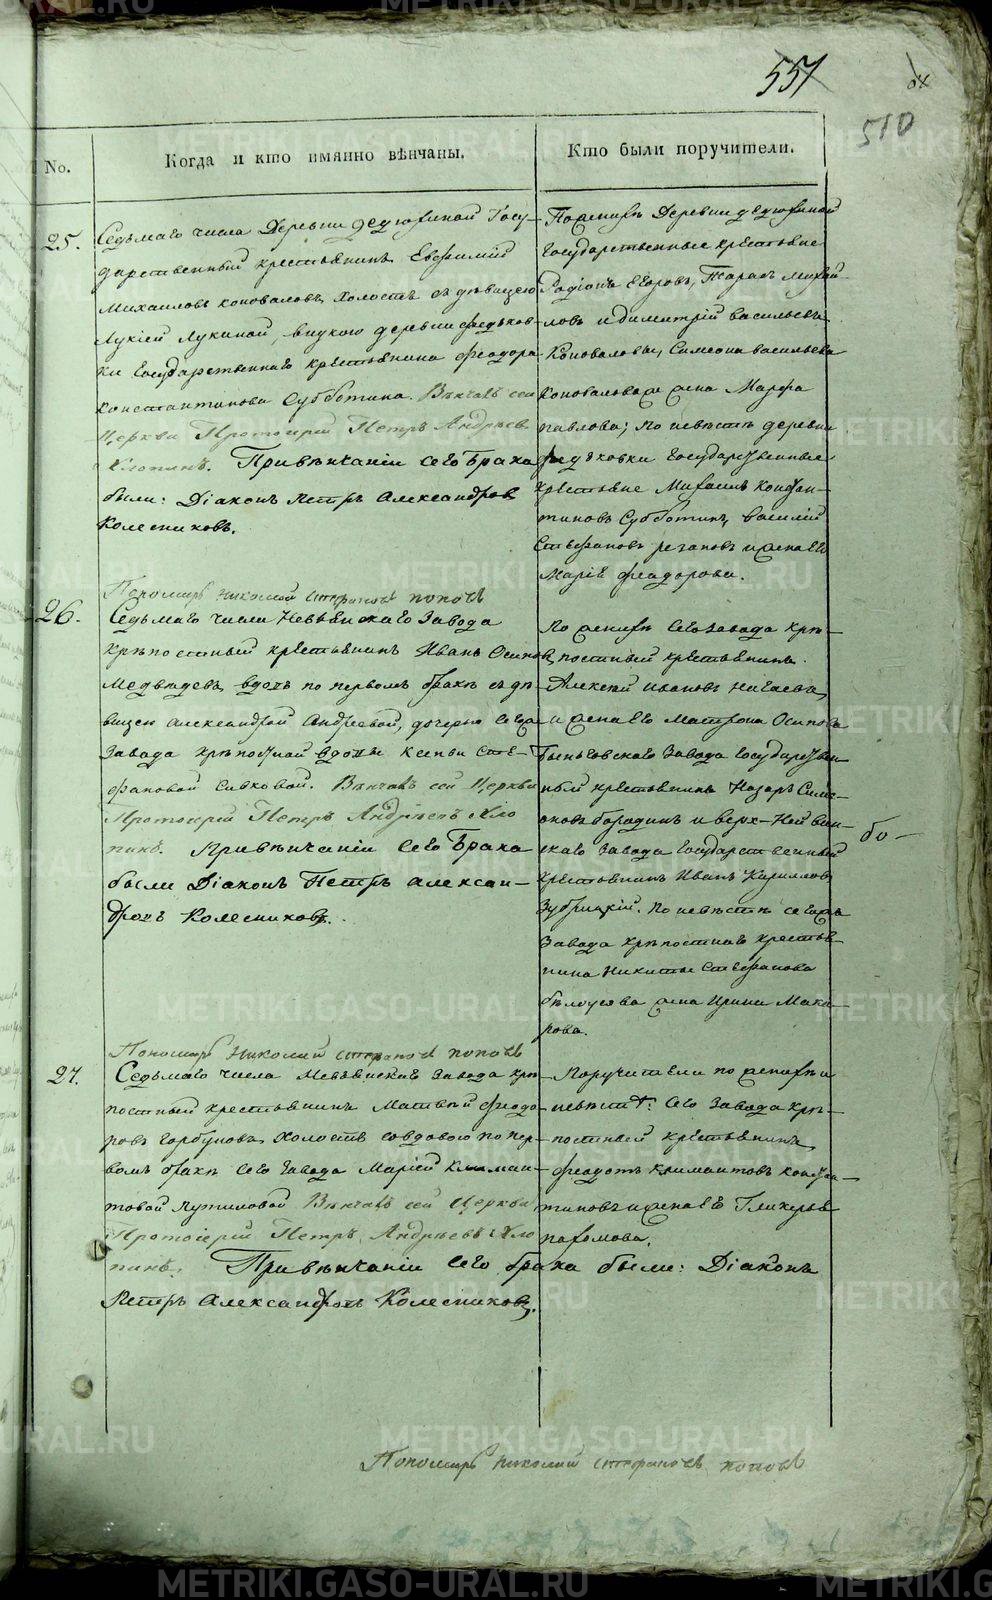 557
510
No.
Когда и кто имянно вѣнчаны.
Кто были поручители.
25.
Седьмаго числа Деревни Федюниной Госу-
дарственный крестьянинъ Евфимій
Михаиловъ коноваловъ, холостъ съ дѣвицею
Лукіей Лукиной, внукою деревни федьков-
ки Государственнаго крестьянина феодора
константинова Субботина. Вѣнчалъ сей
Церкви Протоіерей Петръ Андреевъ
Хлопинъ. При вѣнчаніи сего Брака
были: Діаконъ Петръ Александровъ
Колесниковъ.
Пономарь Николай Стефановъ поповъ
По женихѣ Деревни федюниной
Государственные крестьяне
Радіонъ Егоровъ, Тарасъ Михаи-
ловъ и димитрій васильевъ
Коноваловы, Симеона васильева
Коновалова жена Марфа
павлова; По невѣстѣ деревни
федьковки Государственные
крестьяне Михаилъ констан-
тиновъ Субботинъ, василій
Стефановъ и жена его
Марія феодорова.
26.
Седьмаго числа Невьянскаго Завода
крѣпостный крестьянинъ Иванъ Осиповъ
Медведевъ, вдовъ по первомъ бракѣ съ дѣ-
вицею александрой Андреевой, дочерью сего
Завода крѣпостной вдовы Ксеньи Сте-
фановой Савковой. Вѣнчалъ сей Церкви
Протоіерей Петръ Андреевъ Хло
пинъ. При вѣнчаніи Сего Брака
были Діаконъ Петръ Алексан-
дровъ Колесниковъ.
Пономарь Николай Стефановъ поповъ
По женихѣ Сего завода крѣ-
постный крестьянинъ
Алексѣй ивановъ
и жена его Матрона Осипова
Быньговскаго Завода Государствен
ный крестьянинъ Назаръ Симе-
оновъ бородинъ и верх-Нейвин-
скаго Завода Государственный
крестьянинъ Иванъ Кириловъ
Зубрицкій. По невѣстѣ сегожъ
Завода крѣпостнаго крестья-
нина Никиты Стефанова
бѣлоусова жена Ирина Мака-
рова.
бо-
27.
Седьмаго числа Невьянскаго Завода крѣ-
постный крестьянинъ Матвѣй феодо-
ровъ горбуновъ холостъ со вдовою по пер-
вомъ бракѣ сего Завода Маріей Климан-
товой путиловой Вѣнчалъ сей Церкви
Протоіерей Петръ Андреевъ Хло
пинъ. При вѣнчаніи сего брака были: Діаконъ
Петръ Александровъ Колесниковъ.
Поручители по женихѣ и
невѣстѣ: Сего Завода крѣ-
постный крестьянинъ
феодотъ климантовъ констан-
тиновъ и жена его Гликерья
пахомова.
Пономарь Николай Стефановъ поповъ
METRIKI.GASO-URAL.RU